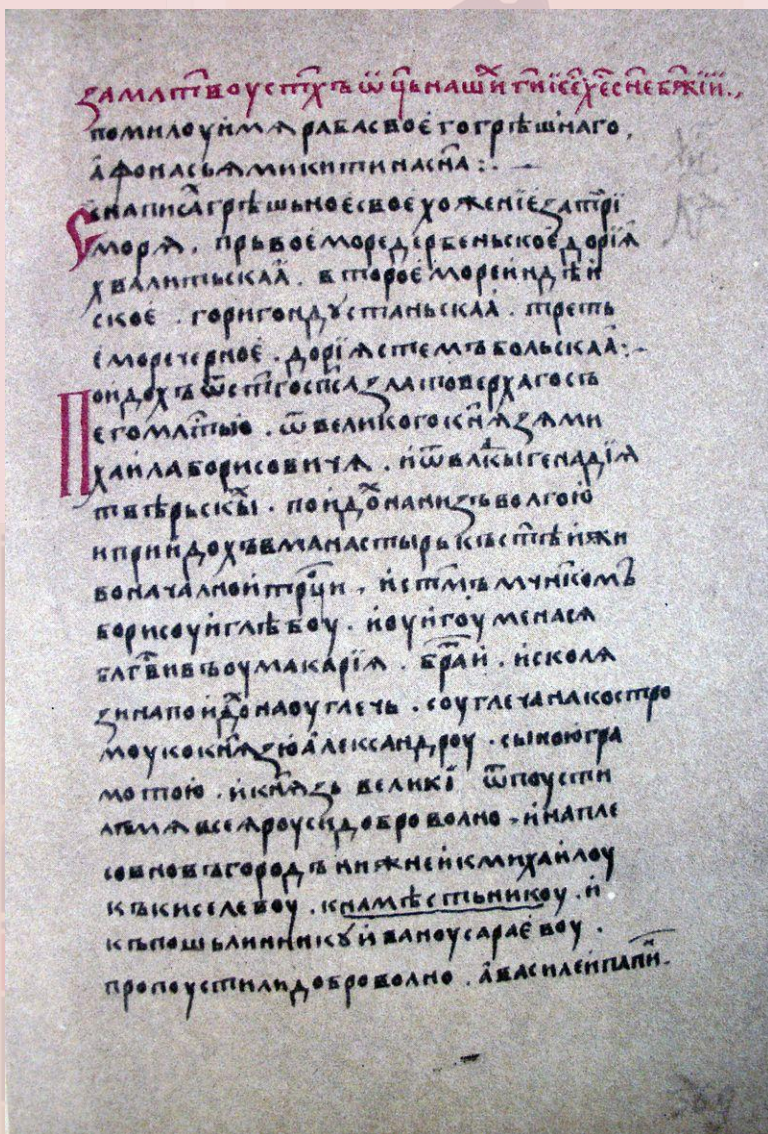 за млт҃воу ст҃хъ ѿц҃ь нашⷯи гн҃и їсе҃ хе҃ сн҃е бж҃їи.,
помилоуй мѧ раба своего грѣшнаго,
афонасьꙗ микитина сн҃а :. —
Се написⷶа грѣшьное свое хоженїе за трї
морѧ . прьвое море дербеньское дорїа
хвалитьскаа . второе море индѣй
ское . гори гондꙋстаньскаа . треть
е море черное . дорїꙗ стемъбольскаа :. —
Поидохъ ѿ ст҃го сп҃са златоверхаго съ
его млт҃ью . ѿ великого кнѧзѧ ми
хаила борисовичѧ . и ѿ влⷣкы генадїѧ
твѣрьскⷯы . поидⷯо на низъ волгою
и прийдохъ в манастырь къ ст҃ѣй жи
воначалной трⷪци . и ст҃мъ мч҃нкомъ
борисоу и глѣбоу . и оу игоумена сѧ
блгⷭвивъ оу макарїѧ . братⷽи . и с колѧ
зина поидⷯо на оуглечь . с оуглеча на костро
моу ко кнѧзю александроу . с ыною гра
мотою . и кнѧзь великї ѿпоусти
лъ мѧ всеѧ роуси доброволно . и на пле
со в новъгородъ нижней к михайлоу
къ киселевоу . к намѣстьникоу . и
къ пошьлинникꙋ иваноу сараевоу .
пропоустили доброволно . а василей папⷩи .
369